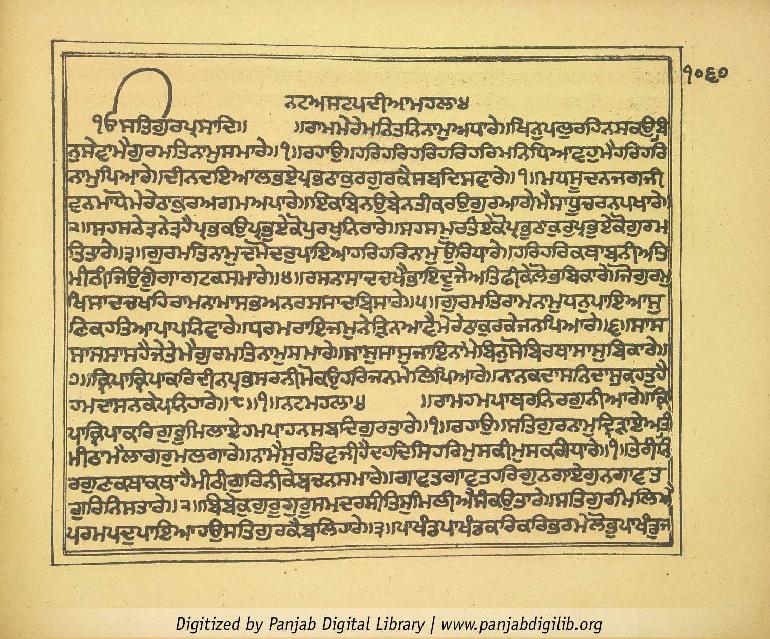 ੧੦੬੦
ਨਟਅਸਟਪਦੀਆਮਹਲਾ੪
ੴਸਤਿਗੁਰਪ੍ਰਸਾਦਿ॥ ॥ਰਾਮਮੇਰੇਮਨਿਤਨਿਨਾਮੁਅਧਾਰੇ॥ਖਿਨੁਪਲੁਰਹਿਨਸਕਉਬਿ
ਨੁਸੇਵਾਮੈਗੁਰਮਤਿਨਾਮੁਸਮਾਰੇ॥੧॥ਰਹਾਉ॥ਹਰਿਹਰਿਹਰਿਹਰਿਹਰਿਮਨਿਧਿਆਵਹੁਮੈਹਰਿਹਰਿ
ਨਾਮੁਪਿਆਰੇ॥ਦੀਨਦਇਆਲਭਏਪ੍ਰਭਠਾਕੁਰਗੁਰਕੈਸਬਦਿਸਵਾਰੇ॥੧॥ਮਧਸੂਦਨਜਗਜੀ
ਵਨਮਾਧੋਮੇਰੇਠਾਕੁਰਅਗਮਅਪਾਰੇ॥ਇਕਬਿਨਉਬੇਨਤੀਕਰਉਗੁਰਆਗੈਮੈਸਾਧੂਚਰਨਪਖਾਰੇ॥
੨॥ਸਹਸਨੇਤ੍ਰਨੇਤ੍ਰਹੈਪ੍ਰਭਕਉਪ੍ਰਭਏਕੋਪੁਰਖੁਨਿਰਾਰੇ॥ਸਹਸਮੂਰਤਿਏਕੋਪ੍ਰਭੁਠਾਕੁਰੁਪ੍ਰਭੁਏਕੋਗੁਰਮ
ਤਿਤਾਰੇ॥੩॥ਗੁਰਮਤਿਨਾਮੁਦਮੋਦਰੁਪਾਇਆਹਰਿਹਰਿਨਾਮੁਉਰਿਧਾਰੇ॥ਹਰਿਹਰਿਕਥਾਬਨੀਅਤਿ
ਮੀਠੀਜਿਉਗੂੰਗਾਗਟਕਸਮਾਰੇ॥੪॥ਰਸਨਾਸਾਦਚਖੈਭਾਇਦੂਜੈਅਤਿਫੀਕੇਲੋਭਬਿਕਾਰੇ॥ਜੋਗੁਰਮੁ
ਖਿਸਾਦਚਖਹਿਰਾਮਨਾਮਾਸਭਅਨਰਸਸਾਦਬਿਸਾਰੇ॥੫॥ਗੁਰਮਤਿਰਾਮਨਾਮੁਧਨੁਪਾਇਆਸੁ
ਣਿਕਹਤਿਆਪਾਪਨਿਵਾਰੇ॥ਧਰਮਰਾਇਜਮੁਨੇੜਿਨਆਵੈਮੇਰੇਠਾਕੁਰਕੇਜਨਪਿਆਰੇ॥੬॥ਸਾਸ
ਸਾਸਸਾਸਹੈਜੇਤੇਮੈਗੁਰਮਤਿਨਾਮੁਸਮਾਰੇ॥ਸਾਸੁਸਾਸੁਜਾਇਨਾਮੈਬਿਨੁਸੋਬਿਰਥਾਸਾਸੁਬਿਕਾਰੇ॥
੭॥ਕ੍ਰਿਪਾਕ੍ਰਿਪਾਕਰਿਦੀਨਪ੍ਰਭਸਰਨੀਮੋਕਉਹਰਿਜਨਮੇਲਿਪਿਆਰੇ॥ਨਾਨਕਦਾਸਨਿਦਾਸੁਕਹਤੁਹੈ
ਹਮਦਾਸਨਕੇਪਨਿਹਾਰੇ॥੮॥੧॥ਨਟਮਹਲਾ੪ ॥ਰਾਮਹਮਪਾਥਰਨਿਰਗੁਨੀਆਰੇ॥ਕ੍ਰਿ
ਪਾਕ੍ਰਿਪਾਕਰਿਗੁਰੂਮਿਲਾਏਹਮਪਾਹਨਸਬਦਿਗੁਰਤਾਰੇ॥੧॥ਰਹਾਉ॥ਸਤਿਗੁਰਨਾਮੁਦ੍ਰਿੜਾਏਅਤਿ
ਮੀਠਾਮੈਲਾਗਰੁਮਲਗਾਰੇ॥ਨਾਮੈਸੁਰਤਿਵਜੀਹੈਦਹਦਿਸਿਹਰਿਮੁਸਕੀਮੁਸਕਗੰਧਾਰੇ॥੧॥ਤੇਰੀਨਿ
ਰਗੁਣਕਥਾਕਥਾਹੈਮੀਠੀਗੁਰਿਨੀਕੇਬਚਨਸਮਾਰੇ॥ਗਾਵਤਗਾਵਤਹਰਿਗੁਨਗਾਏਗੁਨਗਾਵਤ
ਗੁਰਿਨਿਸਤਾਰੇ॥੨॥ਬਿਬੇਕੁਗੁਰੂਗੁਰੂਸਮਦਰਸੀਤਿਸੁਮਿਲੀਐਸੰਕਉਤਾਰੇ॥ਸਤਿਗੁਰਮਿਲਿਐ
ਪਰਮਪਦੁਪਾਇਆਹਉਸਤਿਗੁਰਕੈਬਲਿਹਾਰੇ॥੩॥ਪਾਖੰਡਪਾਖੰਡਕਰਿਕਰਿਭਰਮੇਲੋਭੁਪਾਖੰਡੁਜ
Digitized by Panjab Digital Library | www.panjabdigilib.org